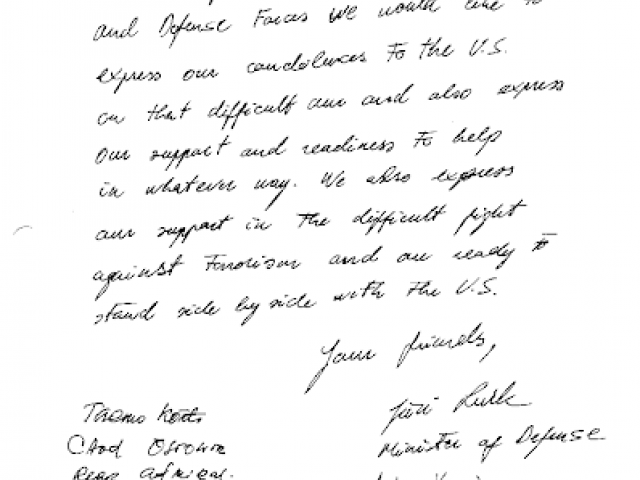 and Defense Forces we would like to
express our condolences to the U.S.
on that difficult our and also express
our support and readiness to help
in whatever way. We also express
our support in the difficult fight
against Terrorism and are ready to
stand side by side with the U.S.
Your friends,
Tarmo Kõuts
Jüri Luik
Minister of Defense
Rear Admiral.